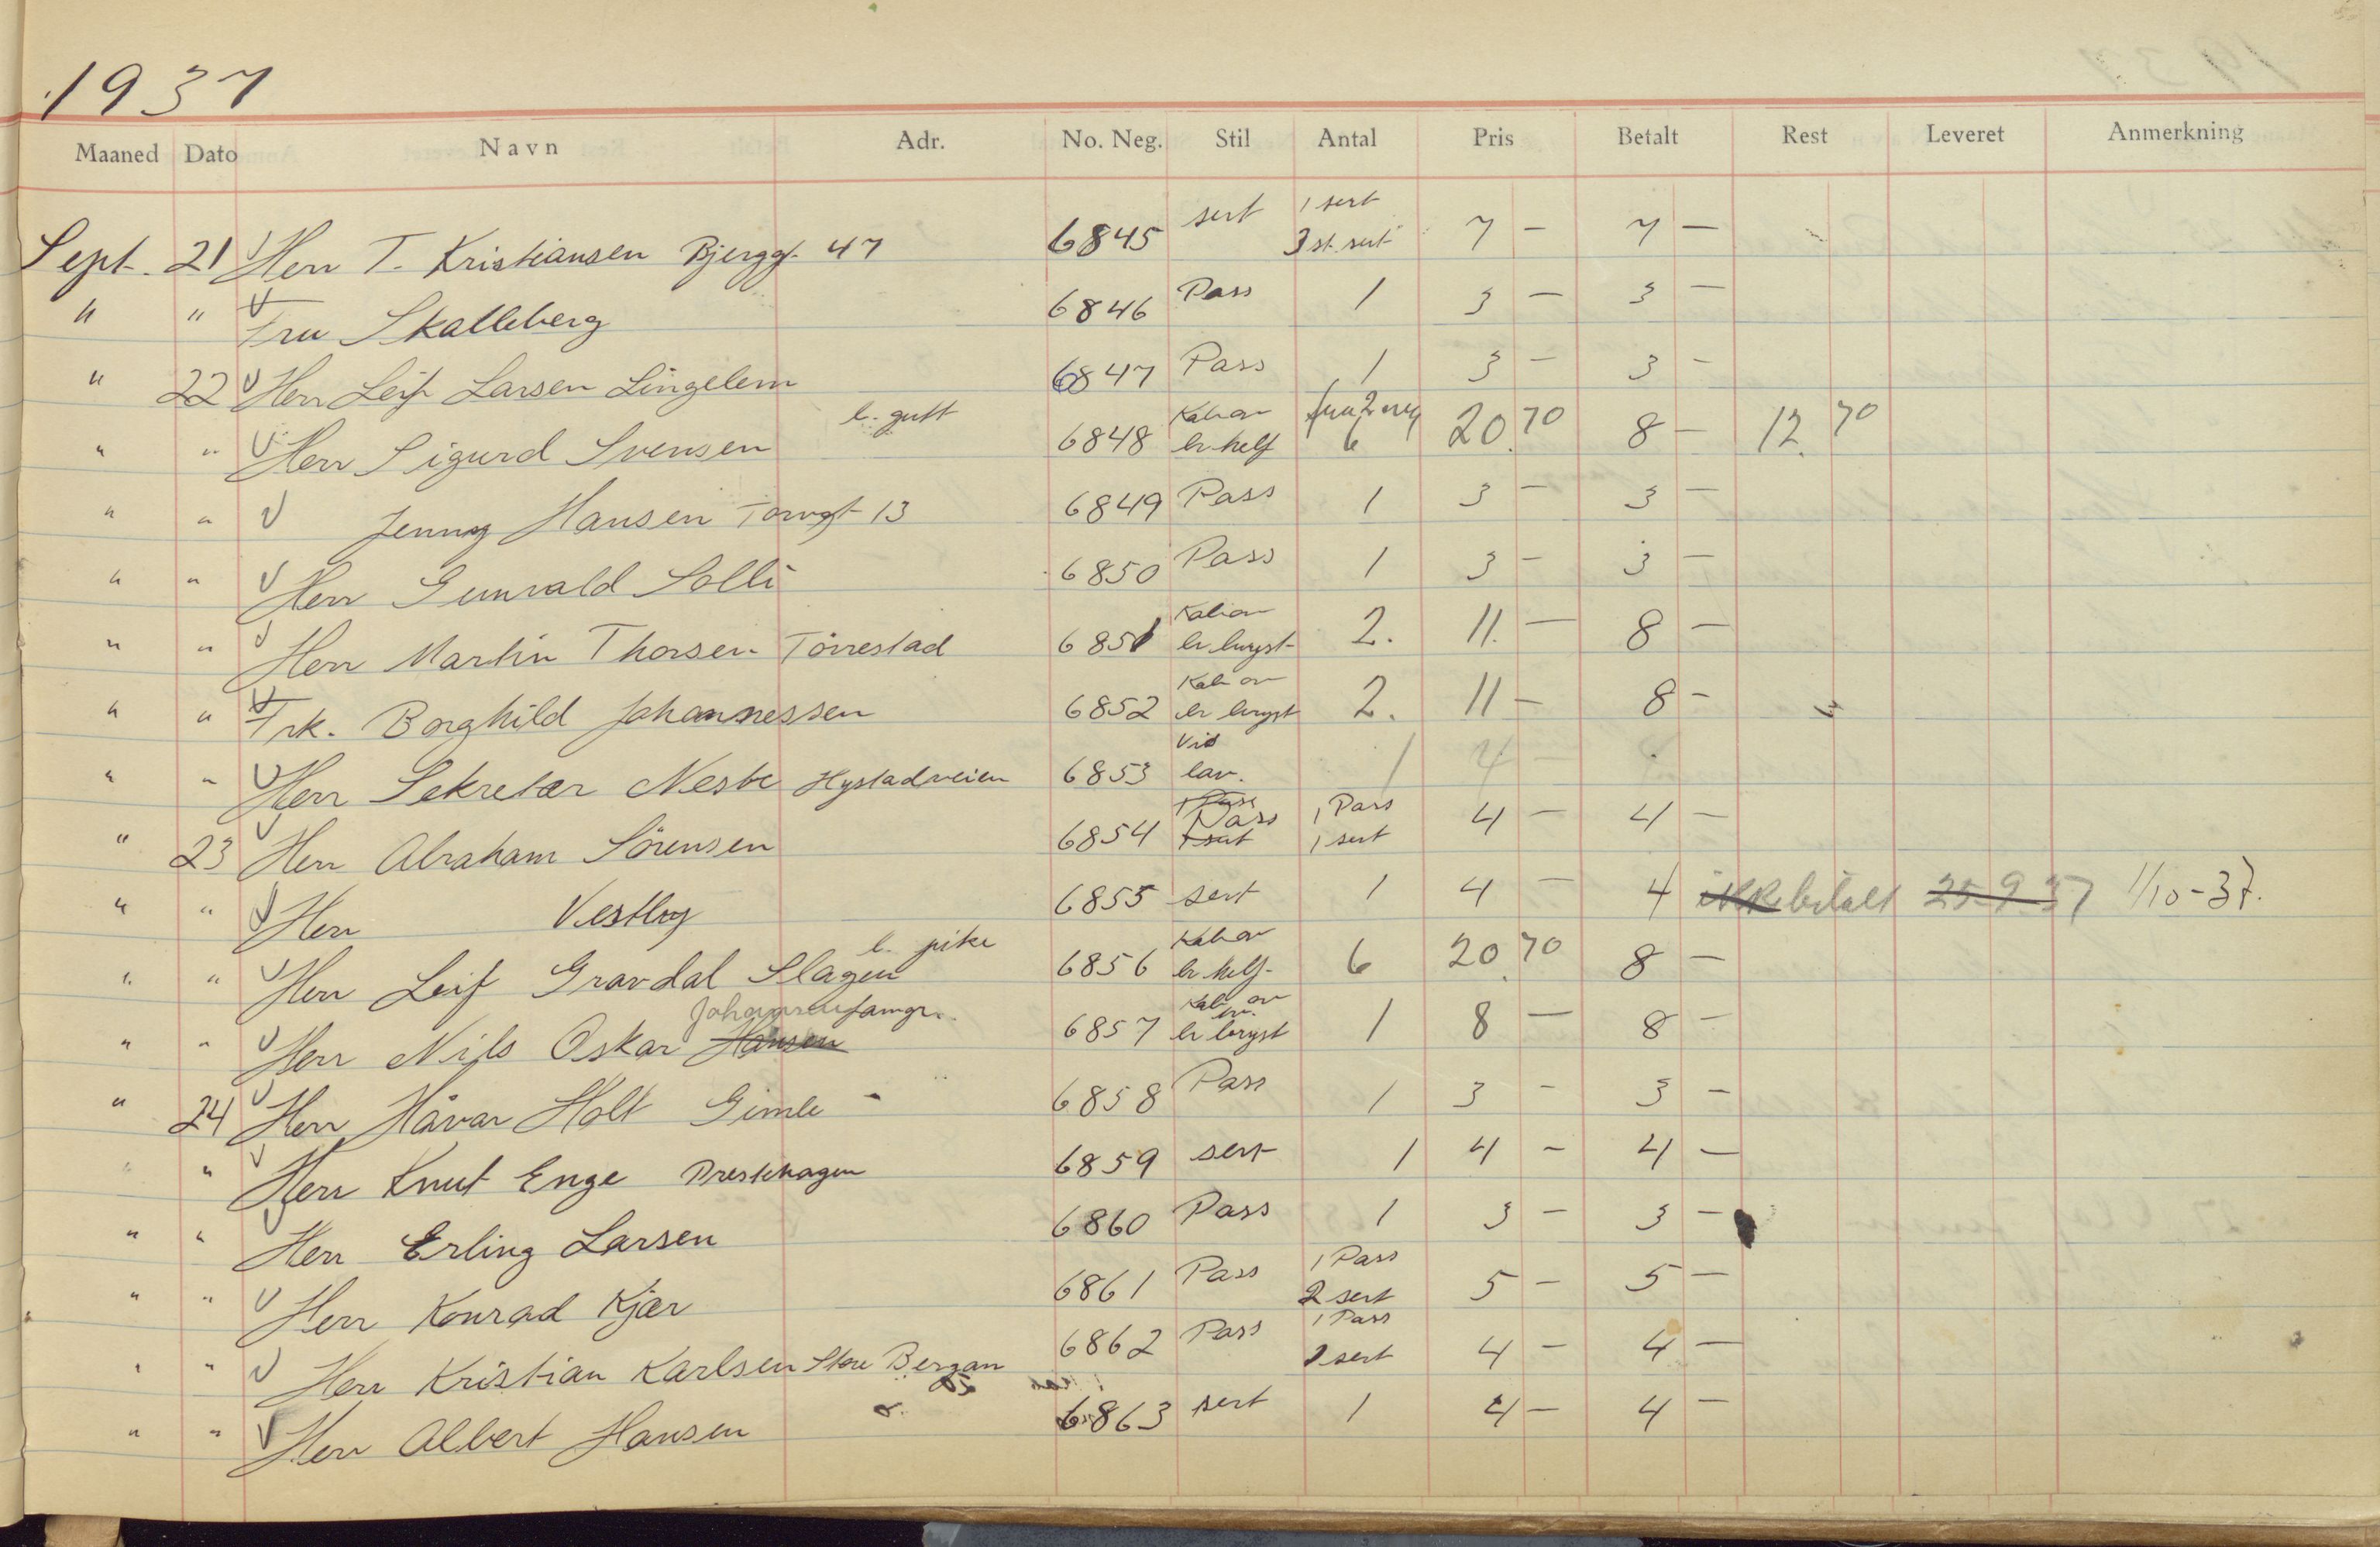 1937
Maaned Dato Navn Adr. No. Neg. Stil Antal Pris Betalt Rest Leveret Anmerkning
sert 1 sert
Sept. 21 V Herr T. Kristiansen Bjergg. 47 6845 3 st. sert 7 — 7 —
" " V Fru Skalleberg 6846 Pass 1 3 — 3 —
" 22 V Herr Leif Larsen Lingelem 6847 Pass 1 3 — 3 —
l. gutt Kabov 2 neg
" " V Herr Sigurd Svensen 6848 br helf 6 20.70 8 — 12.70
" " V Jenny Hansen Torvgt 13 6849 Pass 1 3 — 3 —
" " V Herr Gunvald Solli 6850 Pass 1 3 — 3 —
Kabov
" " V Herr Martin Thorsen Törrestad 6851 br bryst 2. 11. — 8 —
Kab ov
" " V Frk. Borghild Johannessen 6852 br bryst 2. 11 — 8 —
Vis
" " V Herr Sekretær Nesbe Hystadveien 6853 lav. 1 4 —
1 Pass
" 23 V Herr Abraham Sörensen 6854 Pass 1 sert 4 — 4 —
" " V Herr Vestby 6855 sert 1 4 — 4 ikke betalt 25-9-37 1/10-37.
l. pike Kabov
" " V Herr Leif Gravdal Slagen 6856 br helf- 6 20.70 8 —
Johansen famgr. Kab ov
" " V Herr Nils Oskar Hansen 6857 br bryst 1 8 — 8 —
" 24 V Herr Håvar Holt Gimle 6858 Pass 1 3 — 3 —
" " V Herr Knut Enge Prestehagen 6859 sert 1 4 — 4 —
" " V Herr Erling Larsen 6860 Pass 1 3 — 3 —
1 Pass
" " V Herr Konrad Kjær 6861 Pass 2 sert 5 — 5 —
1 Pass
" " V Herr Kristian Karlsen Store Bergan 6862 Pass 1 sert 4 — 4 —
" " V Herr Albert Hansen 6863 sert 1 4 — 4 —